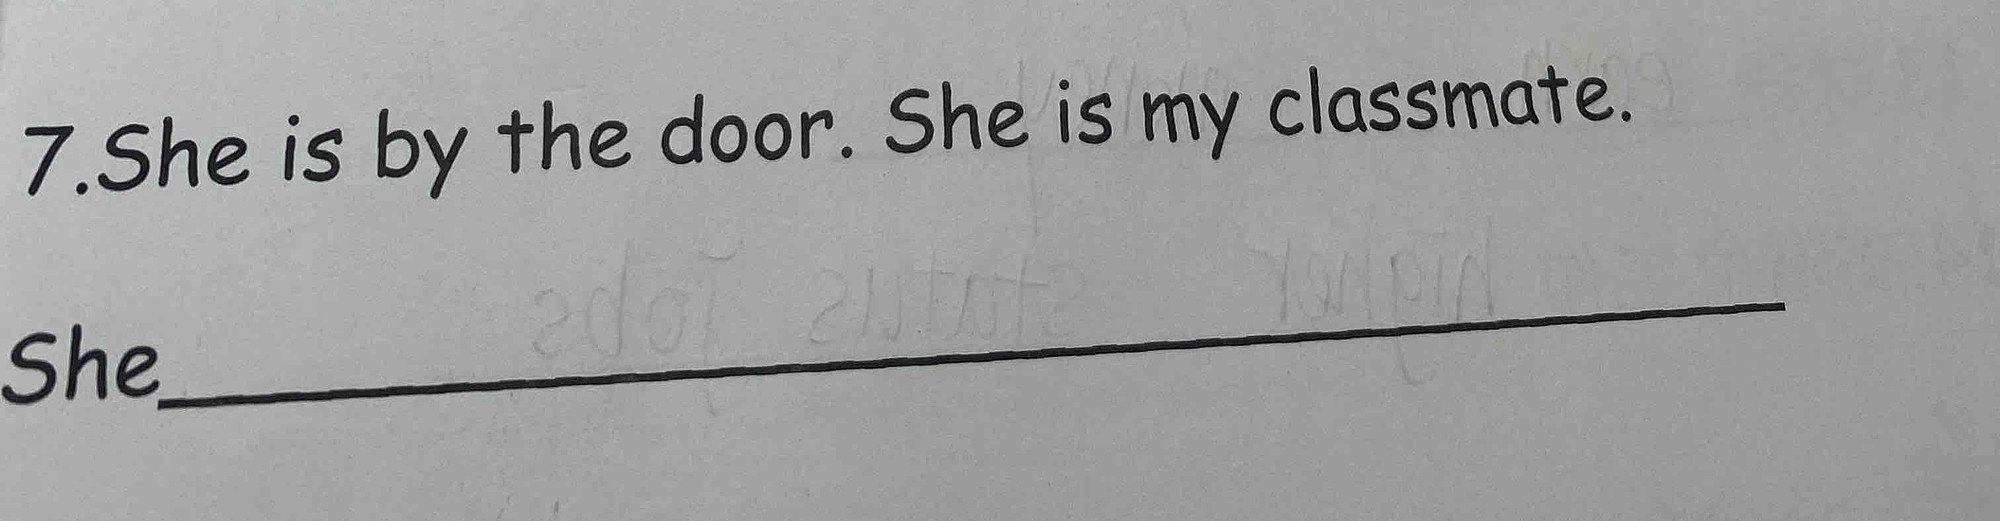 7.She is by the door. She is my classmate.
She